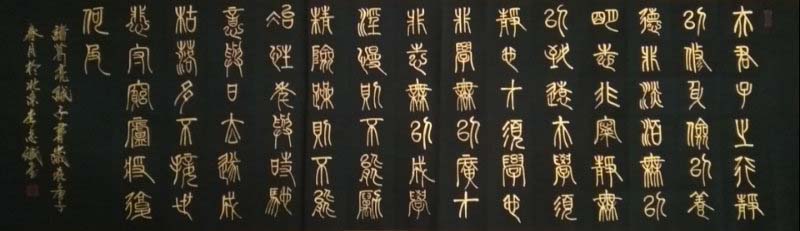 夫君子之行靜
以修身儉以養
德非淡泊無以
明志非寧靜無
以致遠夫學須
靜也才須學也
非學無以廣才
非志無以成學
淫慢則不能勵
精險躁則不能
冶性年與時馳
意與日去遂成
枯落多不接世
悲守窮廬將復
何及
諸葛亮誡子書歲
春月於北京李志書